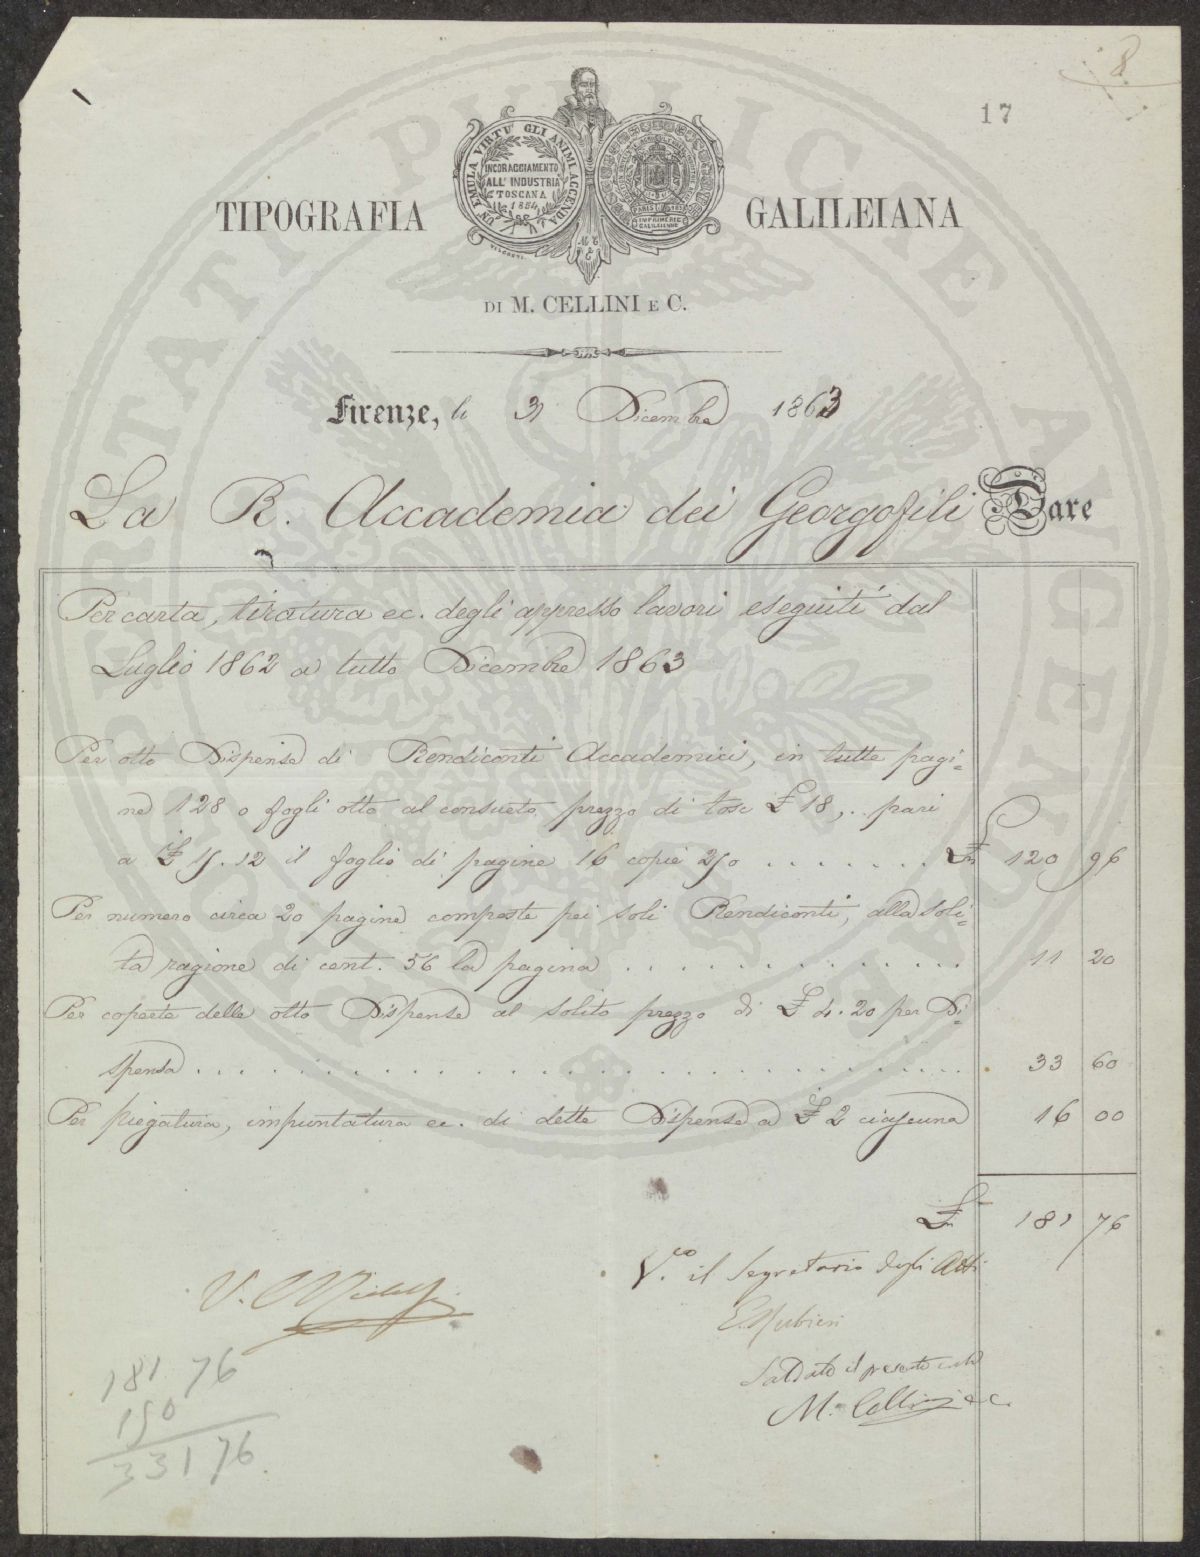 8
17
UN EMULA VIRTU' GLI ANIMI ACCENDA
INCORAGGIAMENTO
ALL'INDUSTRIA
TOSCANA
1854
IMPRIMERIE
GALILEIENNE
TIPOGRAFIA GALILEIANA
DI M. CELLINI E C.
Firenze, li 31 Dicembre 1863
La R. Accademia dei Georgofili Dare
Per carta, tiratura ec. degli appresso lavori eseguiti dal
Luglio 1862 a tutto Dicembre 1863
Per otto Dispense di Rendiconti Accademici, in tutte pagi=
ne 128 o fogli otto al consueto prezzo di tosc £ 18,.. pari
a £ 15.12 il foglio di pagine 16 copie 250 . . . . . . . £n 120 96
Per numero circa 20 pagine composte pei soli Rendiconti, alla soli=
ta ragione di cent. 56 la pagina . . . . . . . . . . . . . 11 20
Per coperte delle otto Dispense al solito prezzo di £ 4.20 per Di=
spensa . . . . . . . . . . . . . . . . . . . . . . . . . 33 60
Per piegatura, impuntatura ec. di dette Dispense a £ 2 ciascuna 16 00
£n 181 76
V.to il Segretario degli Atti
E. Rubieri
V.
Saldato il presente conto
M. Cellini e C.
181 76
150
331 76
SOSPERITATI PUBLICAE AUGENDAE